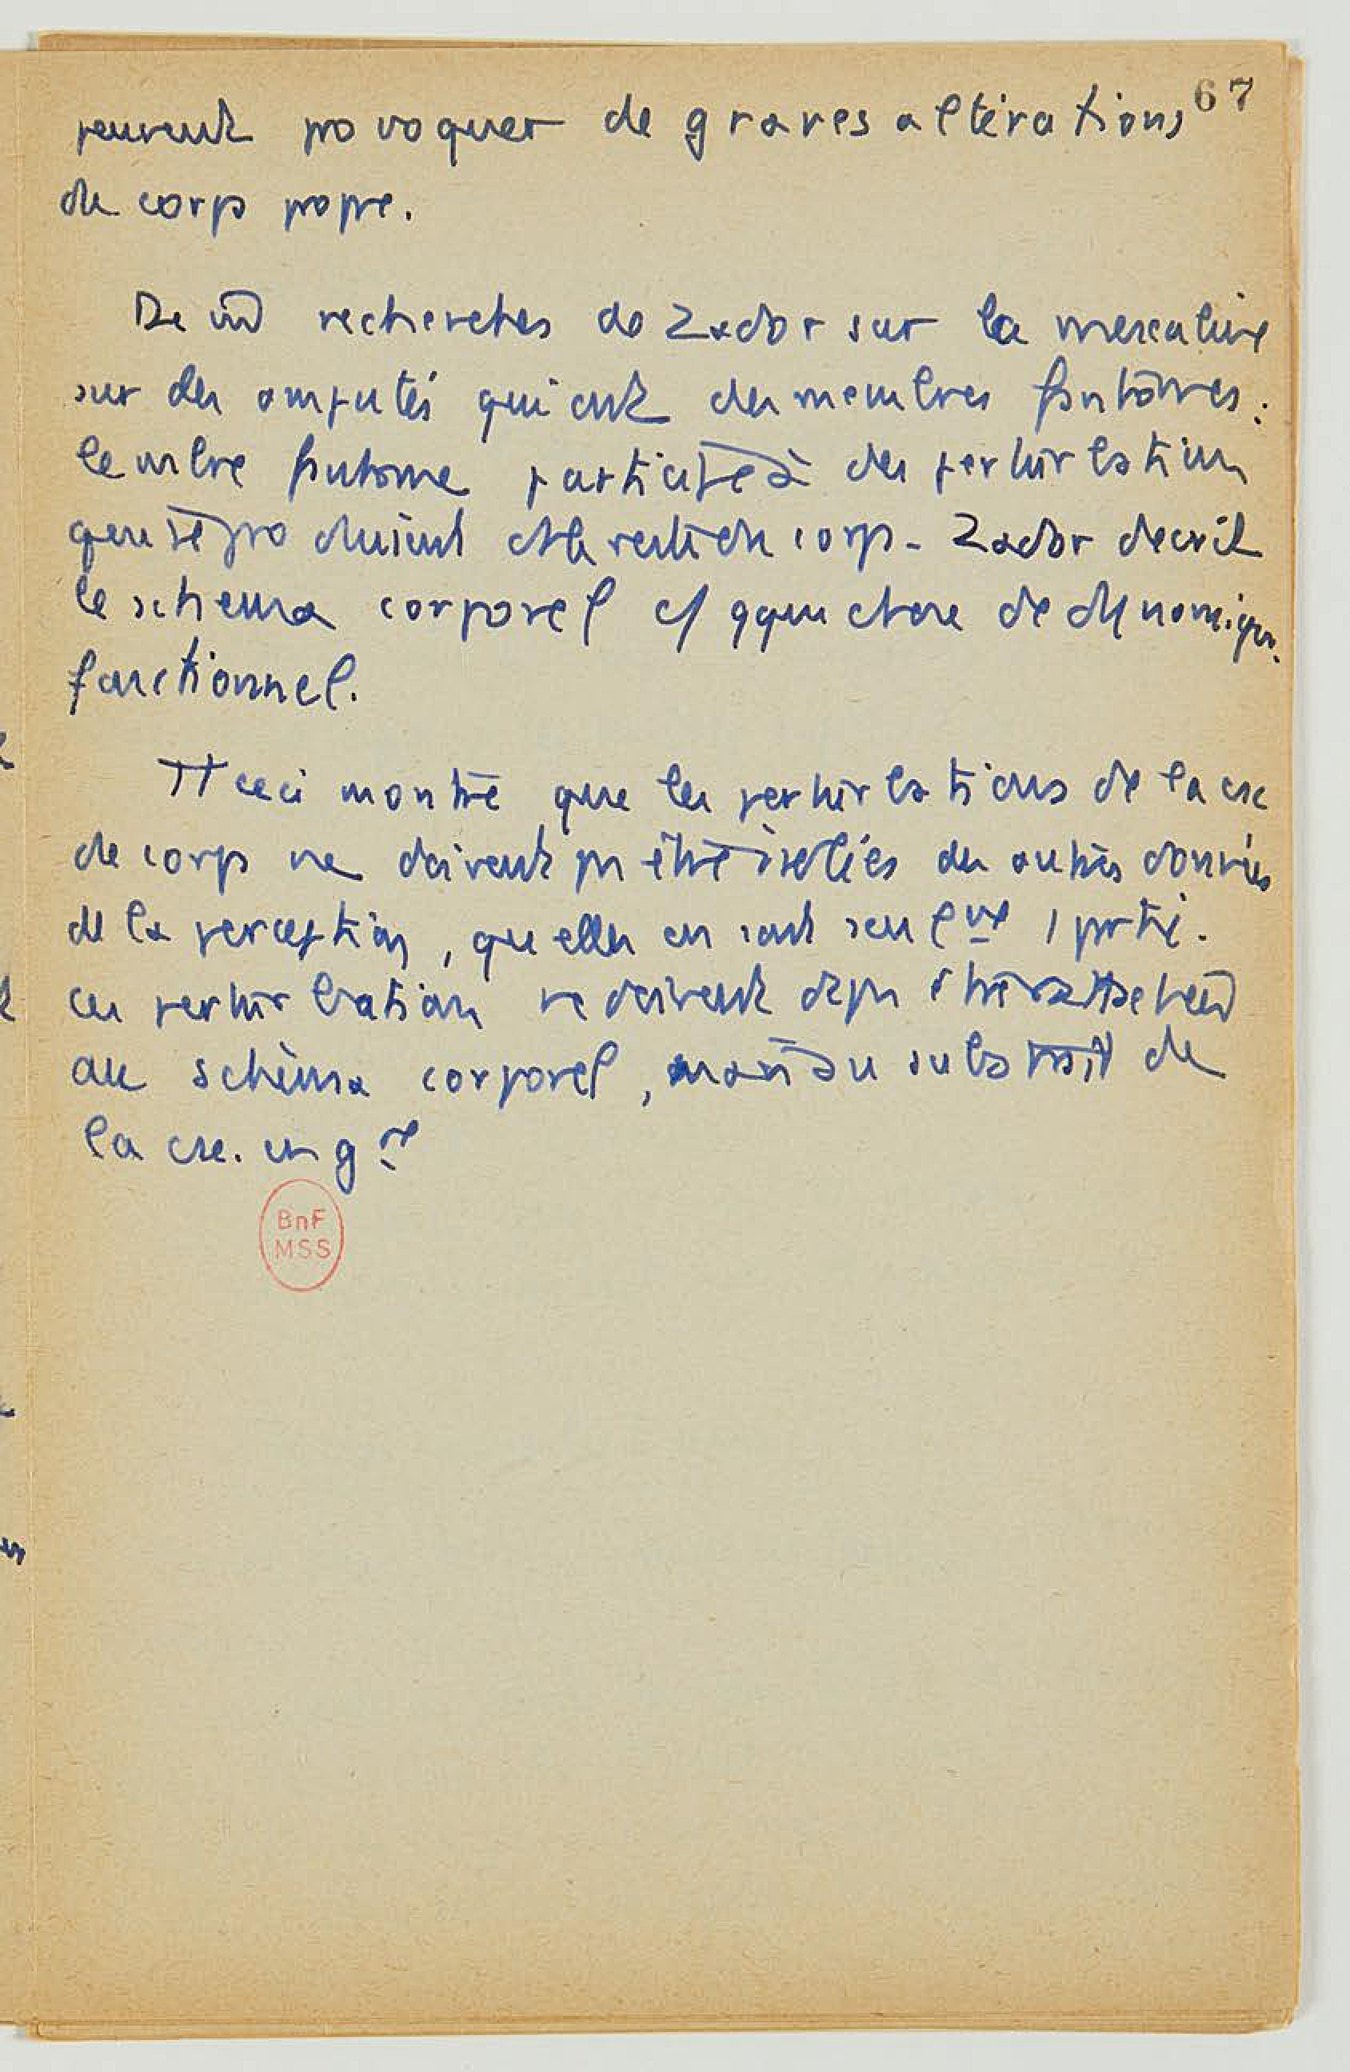 67
peuvent provoquer de graves altérations
du corps propre.
De m̂ recherches de Zador sur la mescaline
sur des amputés qui ont des membres fantômes :
le mbre fantome participe à des perturbations
qui se produisent ds le reste du corps - Zador décrit
le schema corporel c/ qque chose de dynamique.
fonctionnel.
Tt ceci montre que les perturbations de la csc
du corps ne doivent pas être isolées des autres données
de la perception, qu'elles en sont seulmt 1 partie.
ces perturbations ne doivent dc pas être rattachées
au schéma corporel, mais au substrat de
la csc. en gal
BnF
MSS